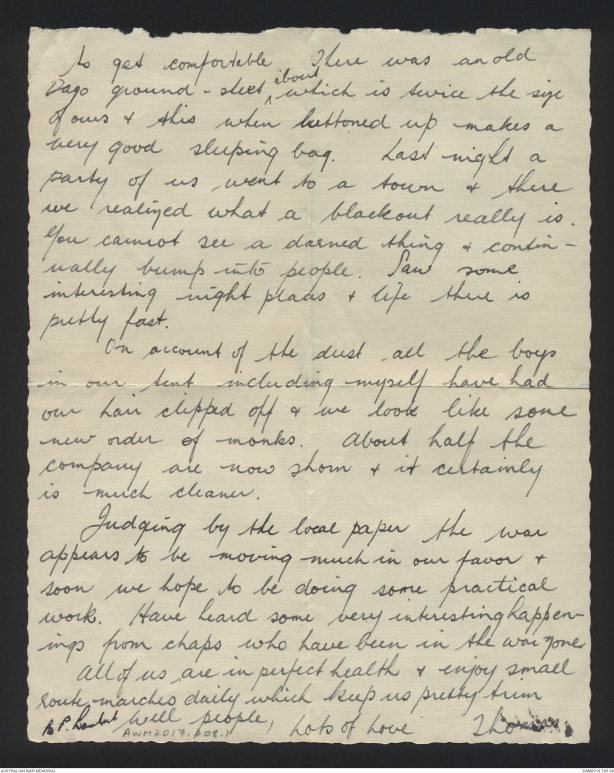 to get comfortable. There was an old
Dago ground-sheet about which is twice the size
of ours & this when buttoned up makes a
very good sleeping bag. Last night a
party of us went to a town & there
we realized what a blackout really is.
You cannot see a darned thing & contin-
ually bump into people. Saw some
interesting night places & life there is
pretty fast.
On account of the dust all the boys
in our tent including myself have had
our hair clipped off & we look like some
new order of monks. About half the
company are now shorn & it certainly
is much cleaner.
Judging by the local paper the war
appears to be moving much in our favor &
soon we hope to be doing some practical
work. Have heard some very interesting happen-
ings from chaps who have been in the war zone.
All of us are in perfect health & enjoy small
route-marches daily which keep us pretty trim
Well people, Lots of Love
AWM2017.
AUSTRALIAN WAR MEMORIAL